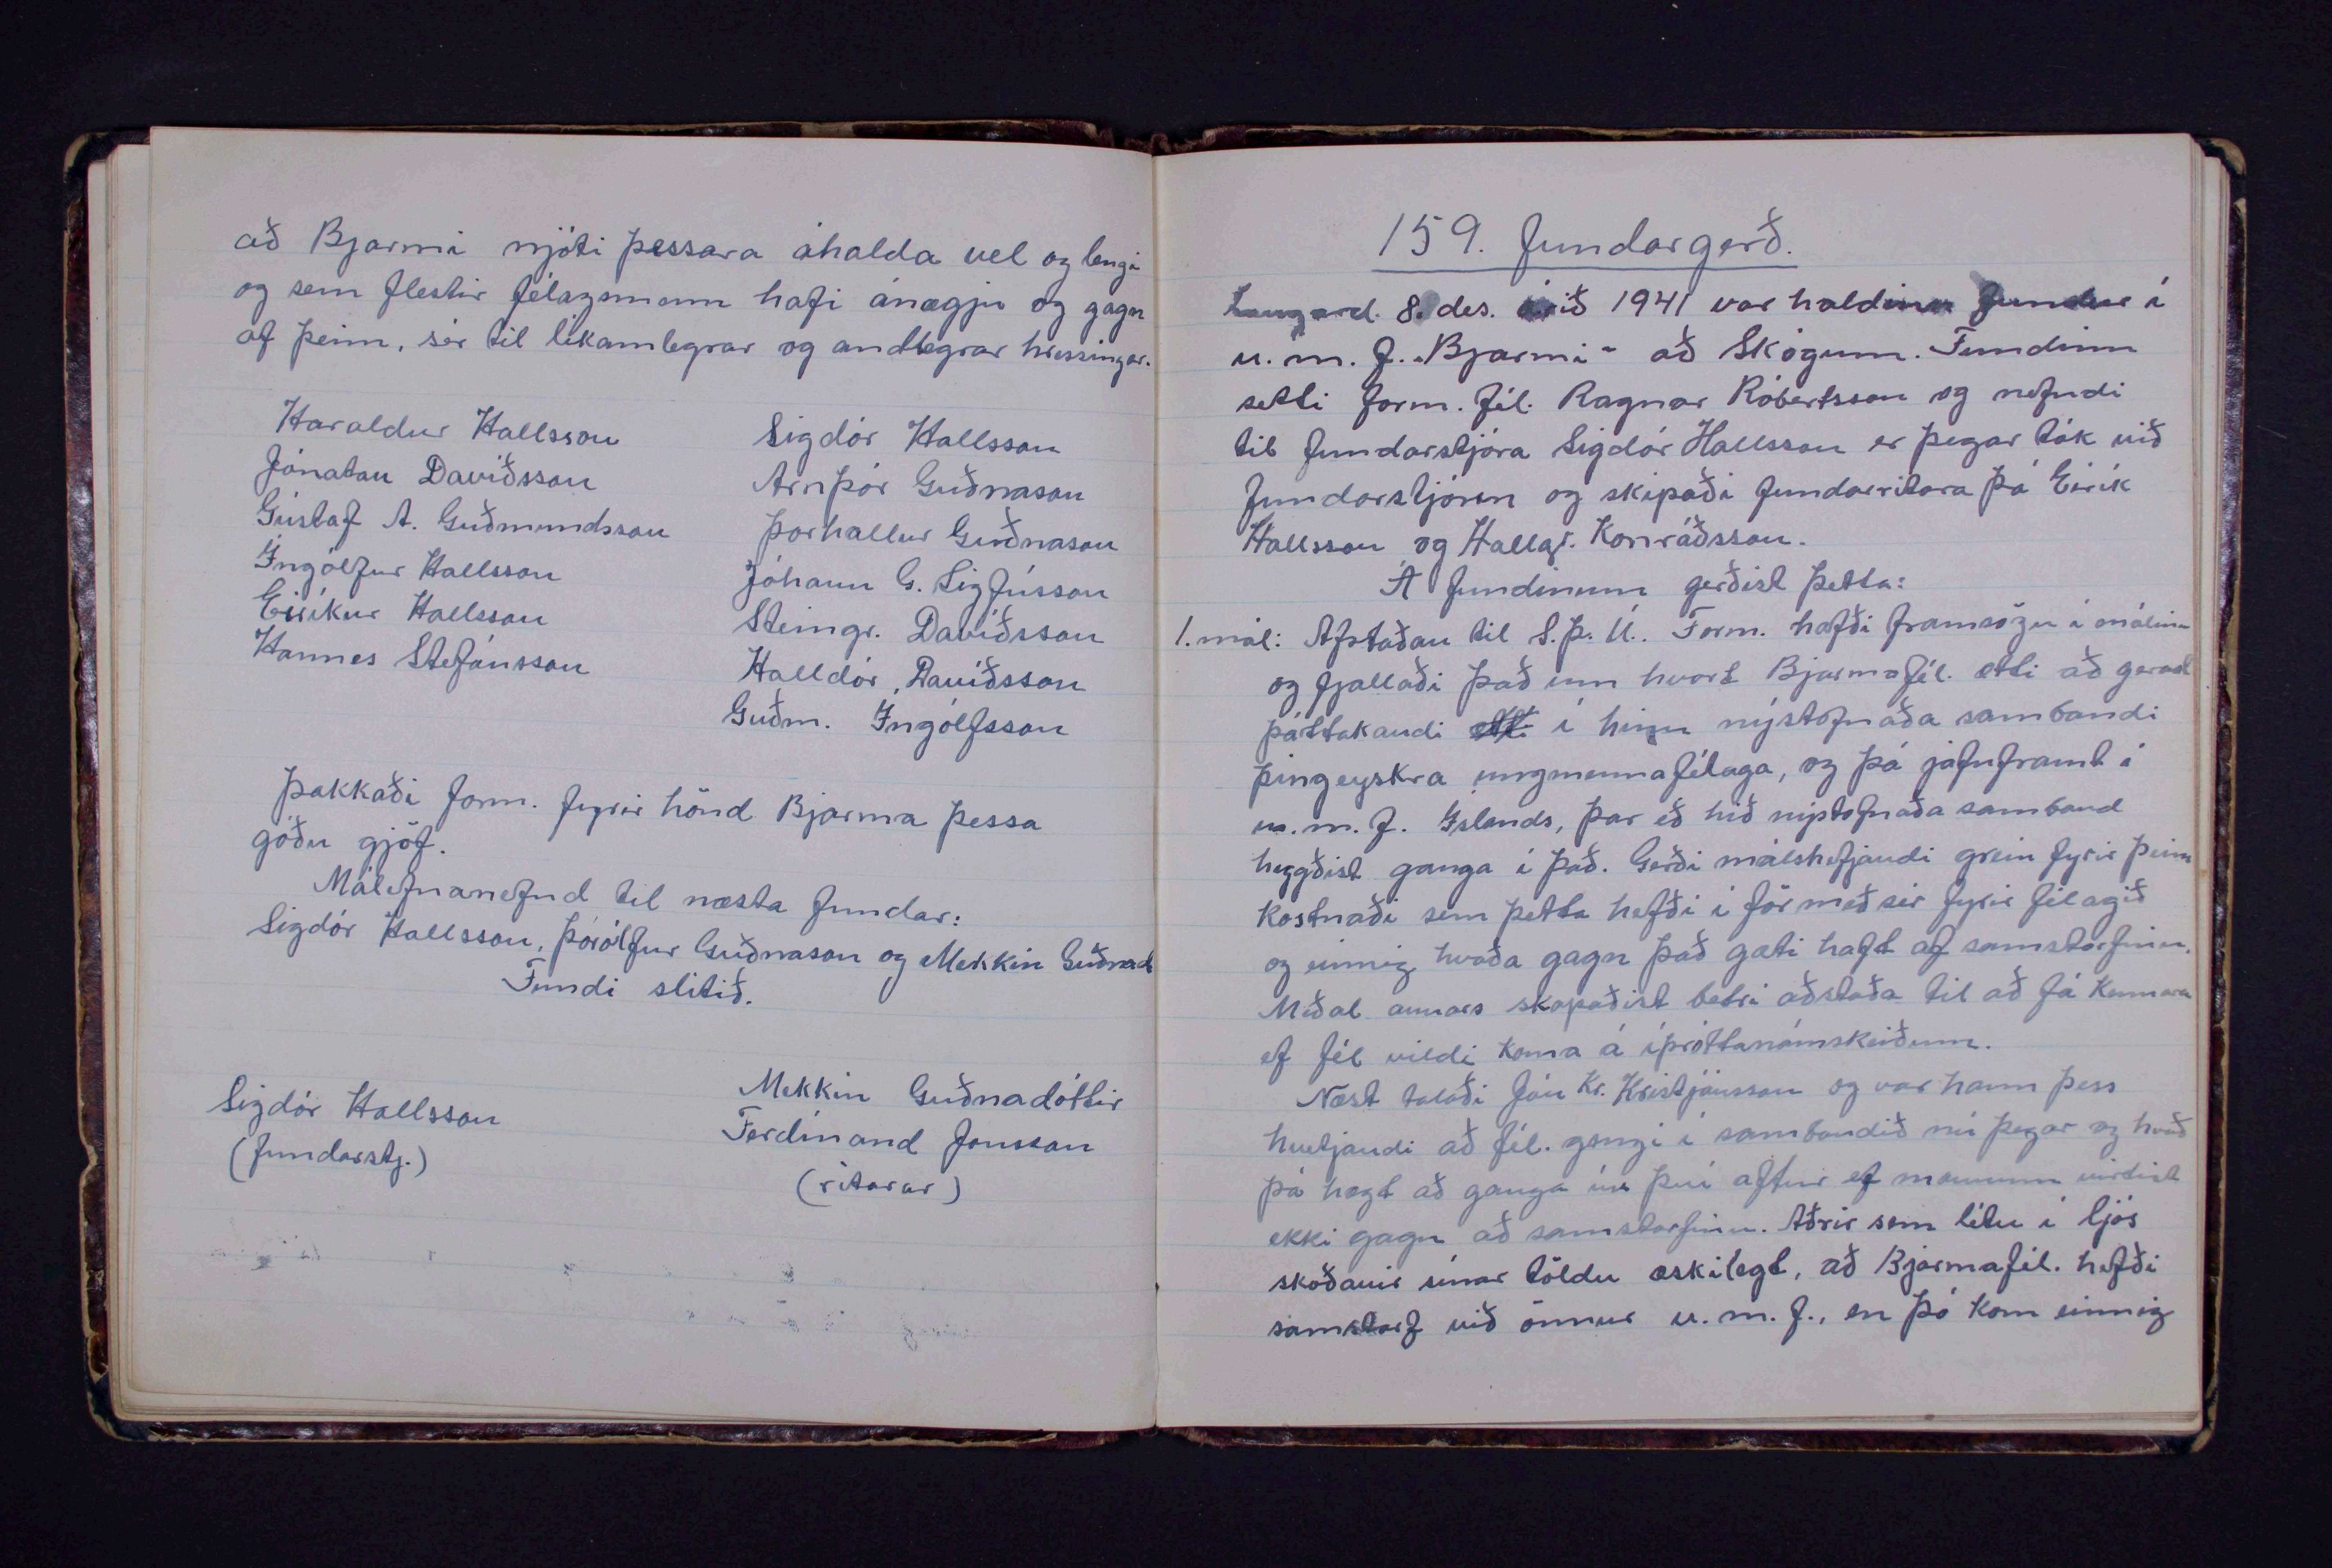 að Bjarmi njóti þessara áhalda vel og lengi
og sem flestir félagsmenn hafi ánægju og gagn
af þeim, sér til líkamlegrar og andlegrar hressingar.
Haraldur Hallsson
Jónatan Davíðsson
Gústaf A. Guðmundsson
Ingólfur Hallsson
Eiríkur Hallsson
Hannes Stefánsson
Sigdór Hallsson
Arnþór Guðnason
Þórhallur Guðnason
Jóhann G. Sigfússon
Steingr. Davíðsson
Halldór Davíðsson
Guðm. Ingólfsson
Þakkaði form. fyrir hönd Bjarma þessa
góðu gjöf.
Málefnanefnd til næsta fundar:
Sigdór Hallsson, Þórólfur Guðnason og Mekkin Guðnad
Fundi slitið.
Sigdór Hallsson
(fundarstj.)
Mekkin Guðnadóttir
Ferdínand Jónsson
(ritarar)
159. fundargerð.
Laugard. 8. des. árið 1941 var haldinn fundur í
u. m. f. „Bjarmi" að Skógum. Fundinn
setti form. fél. Ragnar Róbertsson og nefndi
til fundarstjóra Sigdór Hallsson er þegar tók við
fundarstjórn og skipaði fundarritara þá Eirík
Hallsson og Hallgr. Konráðsson.
Á fundinum gerðist þetta:
1. mál: Afstaðan til S.Þ.U.. Form. hafði framsögu í málinu
og fjallaði það um hvort Bjarmafél. ætti að gerast
þátttakandi í hinu nýstofnaða sambandi
þingeyskra ungmennafélaga, og þá jafnframt í
u. m. f. Íslands, þar eð hið nýstofnaða samband
hyggðist ganga í það. Gerði málshefjandi grein fyrir þeim
kostnaði sem þetta hefði í för með sér fyrir félagið
og einnig hvaða gagn það gæti haft af samstarfinu.
Meðal annars skapaðist betri aðstaða til að fá kennara
ef fél vildi koma á íþróttanámskeiðum.
Næst talaði Jón Kr. Kristjánsson og var hann þess
hvetjandi að fél. gengi í sambandið nú þegar og kvað
þá hægt að ganga úr því aftur ef mönnum virtist
ekki gagn að samstarfinu. Aðrir sem létu í ljós
skoðanir sínar töldu æskilegt, að Bjarmafél. hefði
samstarf við önnur u. m. f., en þó kom einnig